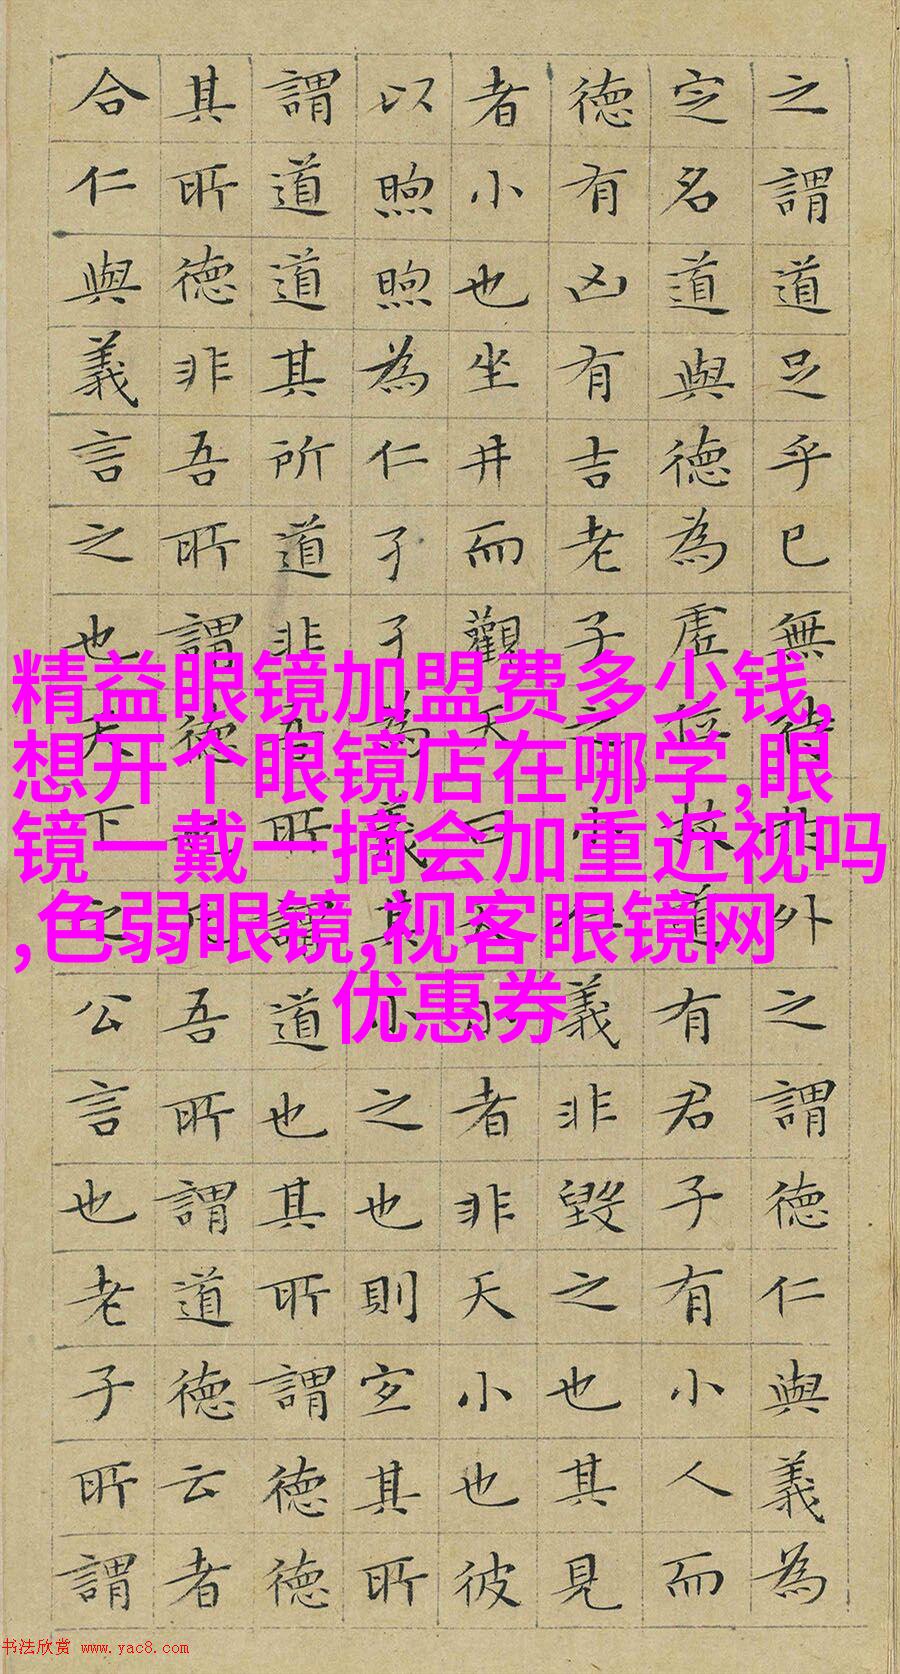 之謂道足乎已無待於外之謂德仁與義為
定名道與德為虛位故道有君子有小人而
德有凶有吉老子之小仁義非毀之也其見
者小也坐井而觀天曰天小者非天小也彼
以煦煦為仁孑孑為義其小之也則宜其所
謂道道其所道非吾所謂道也其所謂德德
其所德非吾所謂德也凡吾所謂道德云者
合仁與義言之也天下之公言也老子所謂
精益眼镜加盟费多少钱,
想开个眼镜店在哪学,眼
镜一戴一摘会加重近视吗
,色弱眼镜,视客眼镜网
优惠券
书法欣赏 www.yac8.com